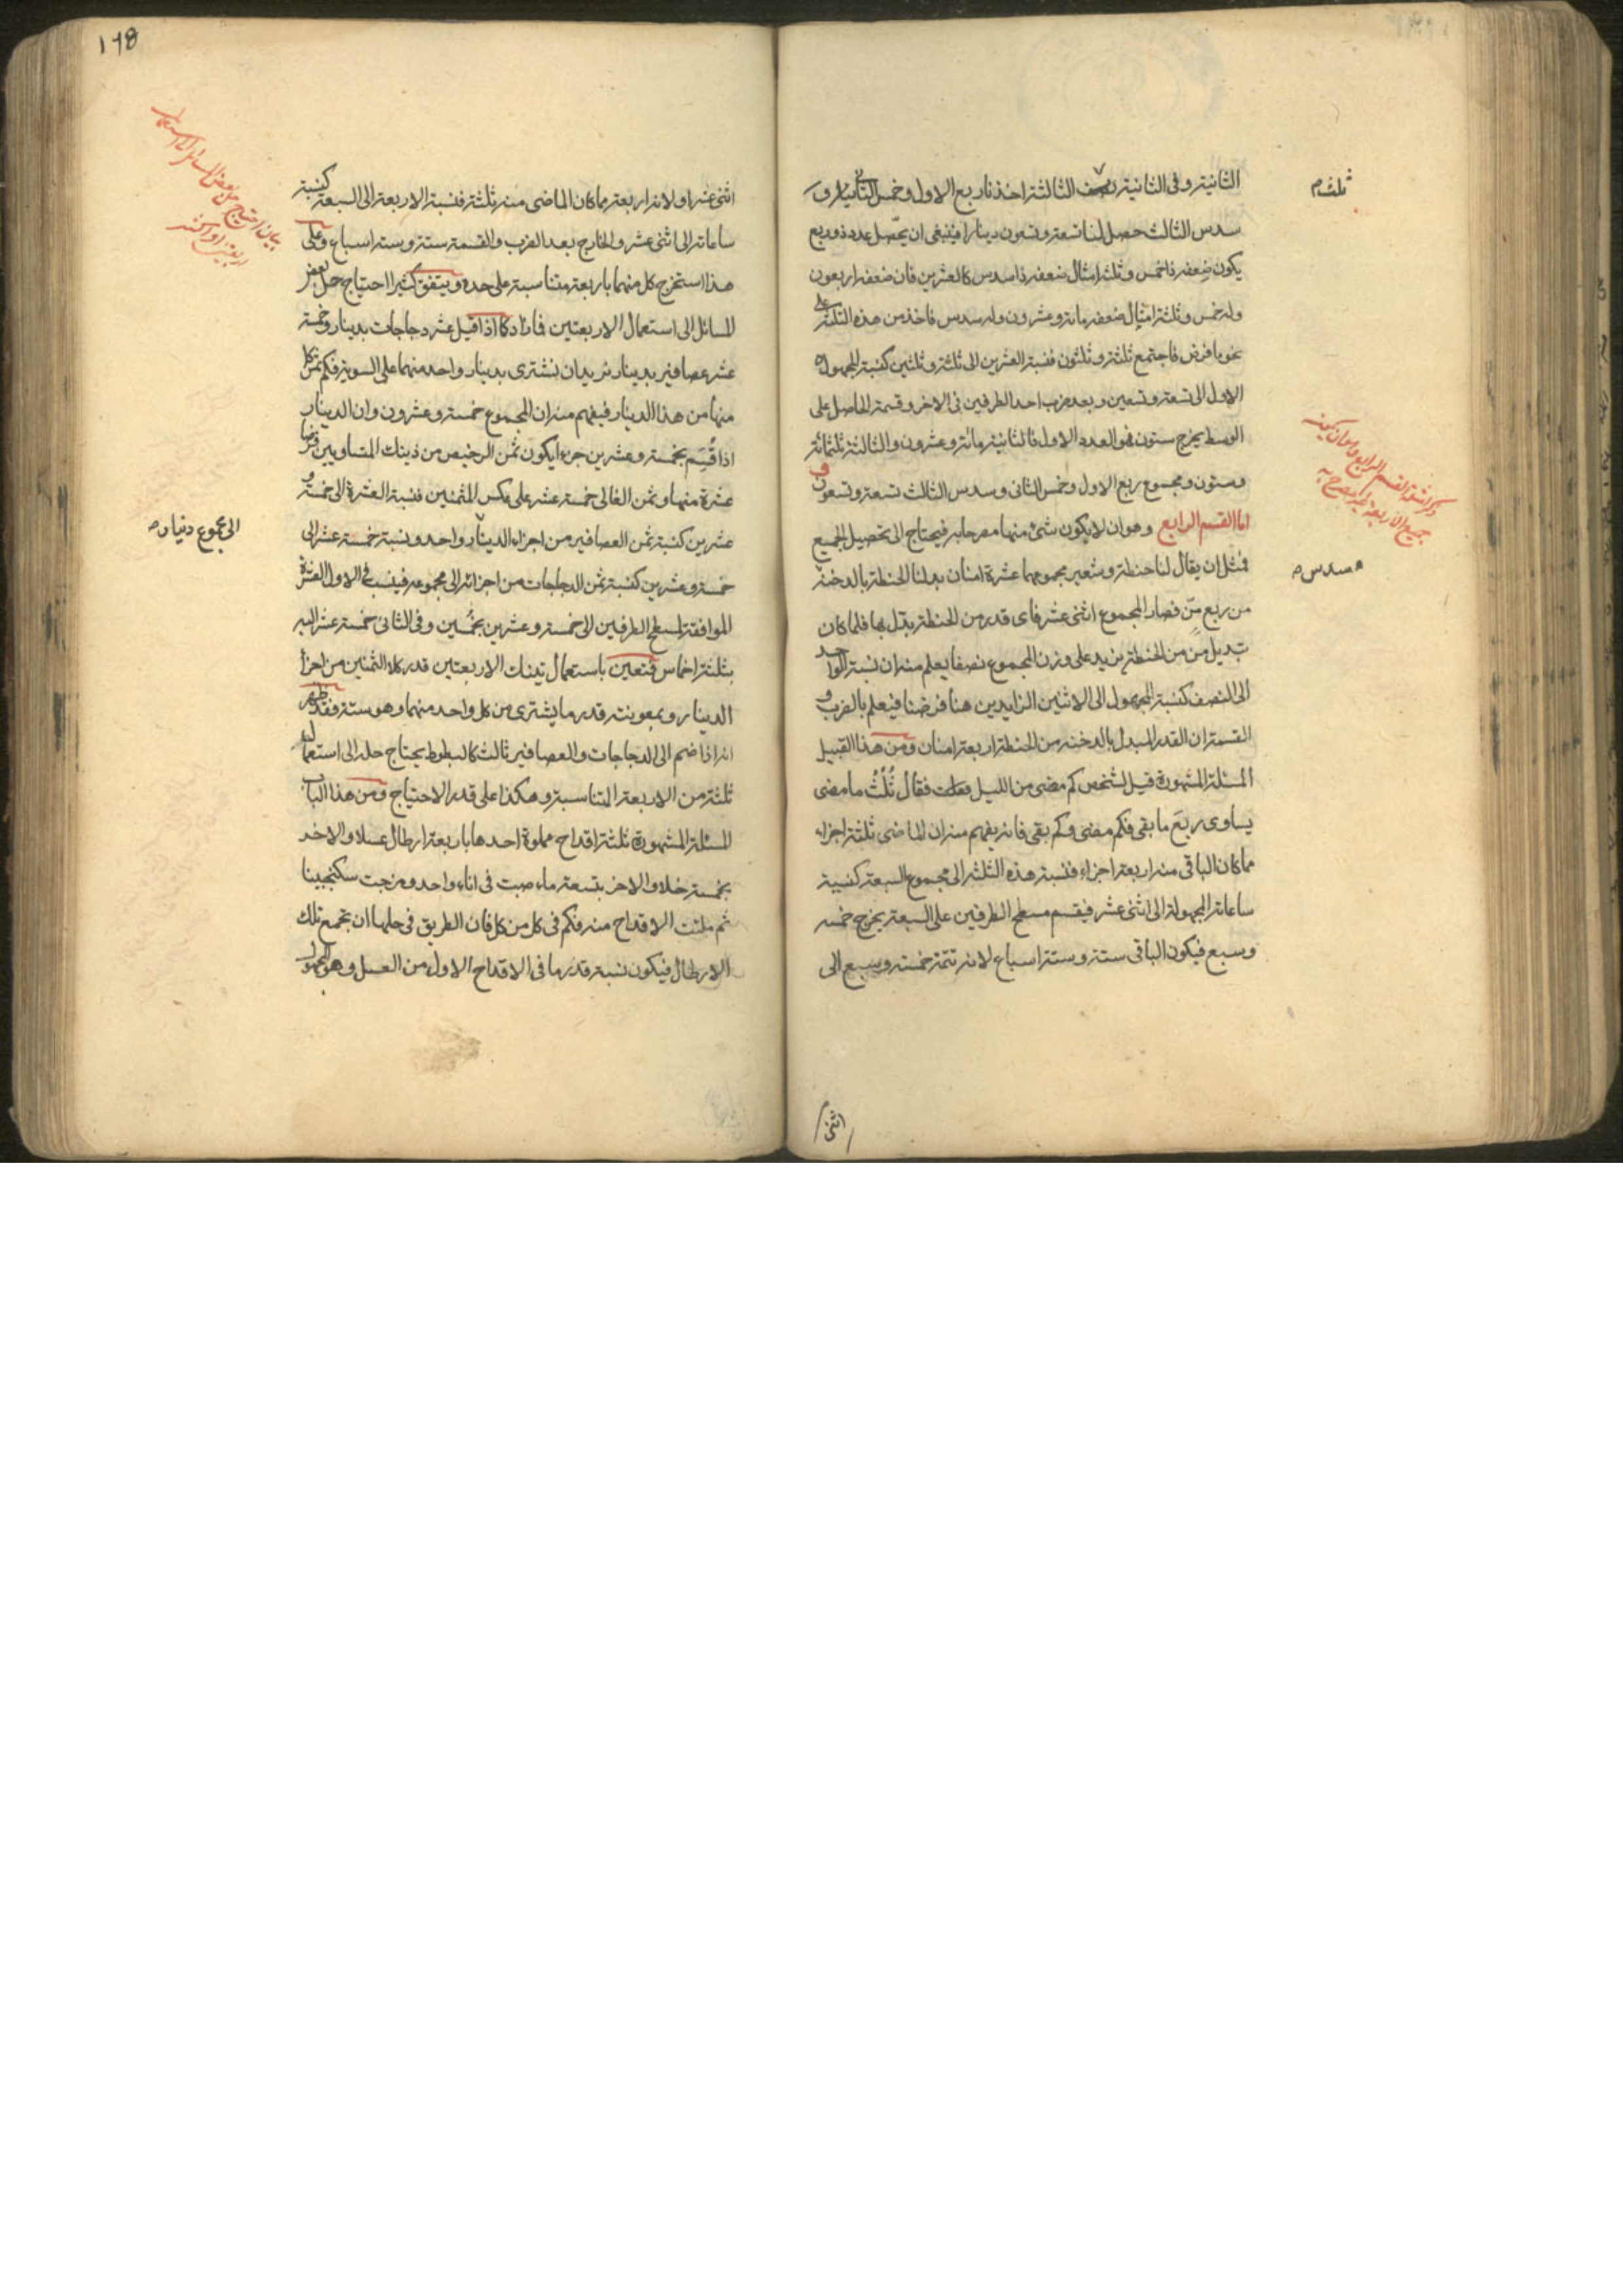 الثانية وفى الثانية نصف الثالثة اخذنا ربع الاول وخمس الثانية و
ثلث
سدس الثالث حصل لنا تسعة وتسعون دينارا فينبغى ان يحصّل عدد ذو ربع
يكون ضعفه ذا خمس وثلثة امثال ضعفه ذا سدس كالعشرين فان ضعفه اربعون
وله خمس وثلثة امثال ضعفه مائة وعشرون وله سدس فاخذ من هذه الثلثة على
نحو ما فرض فاجتمع ثلثة وثلثون فنسبة العشرين الى ثلثة وثلثين كنسبة المجهول
الاول الى تسعة وتسعين وبعد ضرب احد الطرفين فى الاخر وقسمة الحاصل على
الوسط يخرج ستون فهو العدد الاول فالثانية مائة وعشرون والثالثة ثلثمائة
وستون ومجموع ربع الاول وخمس الثانى وسدس الثالث تسعة وتسعون و
اما القسم الرابع وهو ان لا يكون شئ منها مصرحا به فيحتاج الى تحصيل الجميع
فمثل ان يقال لنا حنطة وشعير مجموعهما عشرة امنان بدلنا الحنطة بالدخنة
سدس
من ربع منّ فصار المجموع اثنى عشر فاى قدر من الحنطة بدّل بها فلما كان
تبديل من من الحنطة يزيد على وزن المجموع نصفا يعلم منه ان نسبة الواحد
الى النصف كنسبة المجهول الى الاثنين الزايدين هنا فرضنا فيعلم بالضرب و
القسمة ان القدر المبدل بالدخنة من الحنطة اربعة امنان ومن هذا القبيل
المسئلة المشهورة قيل لشخص كم مضى من الليل فقال ثُلْثُ ما مضى
يساوى ربع ما بقى فكم مضى وكم بقى فانه يفهم منه ان الماضى ثلثة اجزاء
مما كان الباقى منه اربعة اجزاء فنسبة هذه الثلثة الى مجموع السبعة كنسبة
ساعاته المجهولة الى اثنى عشر فيقسم مسطح الطرفين على السبعة يخرج خمسة
وسبع فيكون الباقى ستة وستة اسباع لانه تتمة خمسة وسبع الى
اثنى
اثنى عشر او لانه اربعة مما كان الماضى منه ثلثة فنسبة الاربعة الى السبعة كنسبة
ساعاته الى اثنى عشر والخارج بعد الضرب والقسمة ستة وستة اسباع وعلى
هذا استخرج كل منهما باربعة متناسبة على حده ويتفق كثيرا احتياج حل بعض
المسائل الى استعمال الاربعتين فازاد كما اذا قيل عشر دجاجات بدينار وخمسة
عشر عصافير بدينار نريد ان نشترى بدينار واحد منهما على السوية فكم ثمن كل
منها من هذا الدينار فيفهم منه ان المجموع خمسة وعشرون وان الدينار
اذا قسّم بخمسة وعشرين جزءا يكون ثمن الرخيص من ذينك المتساويين
عشرة منها وثمن الغالى خمسة عشر على عكس المثمنين فنسبة العشرة الى خمسة و
عشرين كنسبة ثمن العصافير من اجزاء الدينار واحد ونسبة خمسة عشر الى
الى مجموع دينار
خمسة وعشرين كنسبة ثمن الدجاجات من اجزائه الى مجموعه فينسب فى الاول العشرة
الموافقة لمسطح الطرفين الى خمسة وعشرين بخُمْسين وفى الثانى خمسة عشر اليه
بثلثة اخماس فتعين باستعمال تينك الاربعتين قدر كلا الثمنين من اجزاء
الدينار وبمعونته قدر ما يشترى من كل واحد منهما وهو ستة فقد ظهر
انه اذا ضم الى الدجاجات والعصافير ثالث كالبطوط يحتاج حله الى استعمال
ثلثة من الاربعة المتناسبة وهكذا على قدر الاحتياج ومن هذا الباب
المسئلة المشهورة ثلثة اقداح مملوة احدها باربعة ارطال عسلا والاخر
بخمسة خلا والاخر بتسعة ماء صبت فى اناء واحد ومزجت سكنجبينا
ثم ملئت الاقداح منه فكم فى كل من كل فان الطريق فى حلها ان تجمع تلك
الارطال فيكون نسبة قدر ما فى الاقداح الاول من العسل وهو المجهول